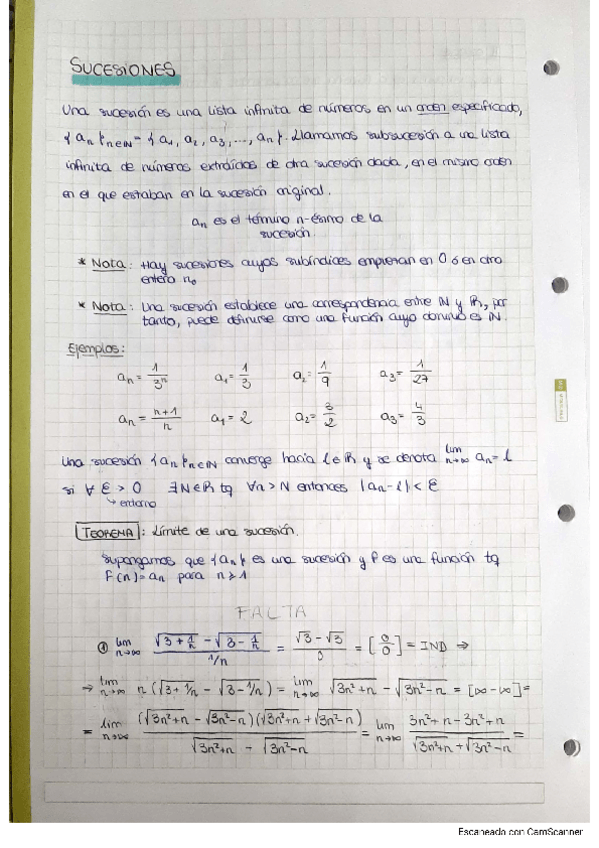 SUCESIONES
Una sucesión es una lista infinita de números en un orden especificado,
{an}n∈ℕ = {a₁, a₂, a₃, ..., an}. Llamamos subsucesión a una lista
infinita de números extraídos de otra sucesión dada, en el mismo orden
en el que estaban en la sucesión original.
an es el término n-ésimo de la
sucesión
* Nota: Hay sucesiones cuyos subíndices empiezan en 0 ó en otro
entero n₀
* Nota: Una sucesión establece una correspondencia entre ℕ y ℝ, por
tanto, puede definirse como una función cuyo dominio es ℕ.
Ejemplos:
an = 1/3ⁿ a₁ = 1/3 a₂ = 1/9 a₃ = 1/27
an = (n+1)/n a₁ = 2 a₂ = 3/2 a₃ = 4/3
Una sucesión {an}n∈ℕ converge hacia l∈ℝ y se denota lim n→∞ an = l
si ∀ ε > 0 ∃N∈ℝ tq ∀n > N entonces |an - l| < ε
↳ entorno
TEOREMA: Límite de una sucesión.
Supongamos que {an} es una sucesión y f es una función tq
f(n) = an para n ≥ 1
FALTA
① lim n→∞ (√(3 + 1/n) - √(3 - 1/n)) / (1/n) = (√3 - √3)/0 = [0/0] = IND ⇒
⇒ lim n→∞ n(√(3 + 1/n) - √(3 - 1/n)) = lim n→∞ √(3n²+n) - √(3n²-n) = [∞ - ∞] =
= lim n→∞ (√(3n²+n) - √(3n²-n))(√(3n²+n) + √(3n²-n)) / (√(3n²+n) - √(3n²-n)) = lim n→∞ (3n² + n - 3n² + n) / (√(3n²+n) + √(3n²-n)) =
Escaneado con CamScanner